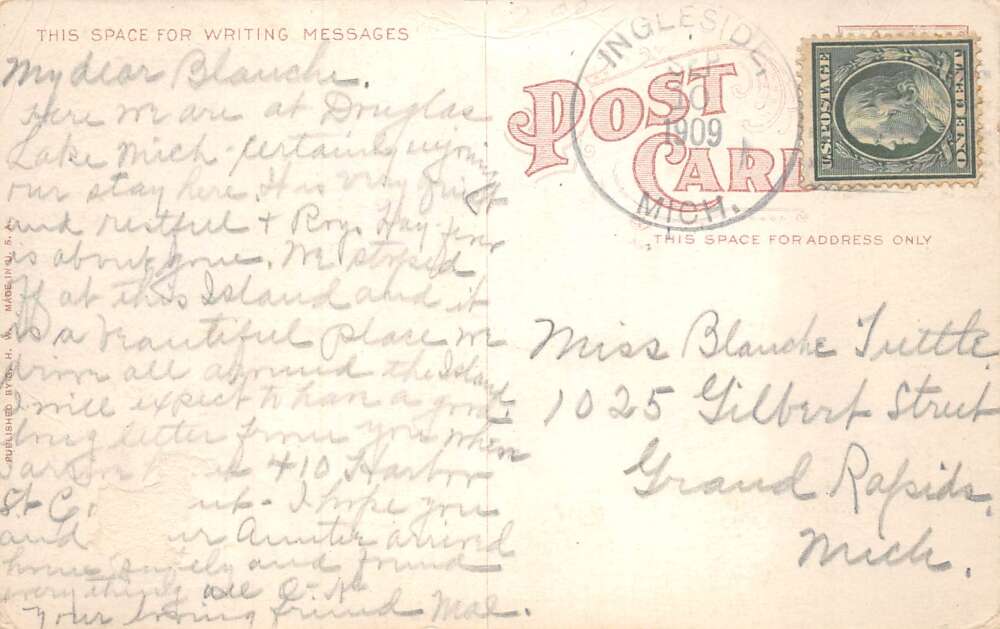 THIS SPACE FOR WRITING MESSAGES
My dear Blanche.
Here we are at Douglas
Lake Mich certainly enjoying
our stay here. It is very quiet
and restful + Roys Hay fever
is about gone. We stopped
off at this Island and it
is a beautiful place we
driv all around the Island
I will expect to have a good
long letter from you when
I arrive 410 Harbor
St I hope you
and Auntie arrived
home safely and found
everything all O.K.
Your loving friend Mae.
PUBLISHED BY H. W. MADE IN U. S. A.
INGLESIDE,
SEP
10
1909
MICH.
POST
CARD
U.S. POSTAGE
ONE CENT
THIS SPACE FOR ADDRESS ONLY
Miss Blanche Tuttle
1025 Gilbert Street
Grand Rapids,
Mich.